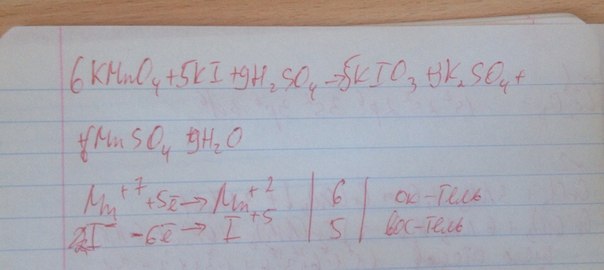 6KMnO₄+5KI+9H₂SO₄→5KIO₃+3K₂SO₄+
6MnSO₄+9H₂O
Mn⁺⁷+5ē→Mn⁺² | 6 | ок-тель
I⁻-6ē→I⁺⁵ | 5 | вос-тель